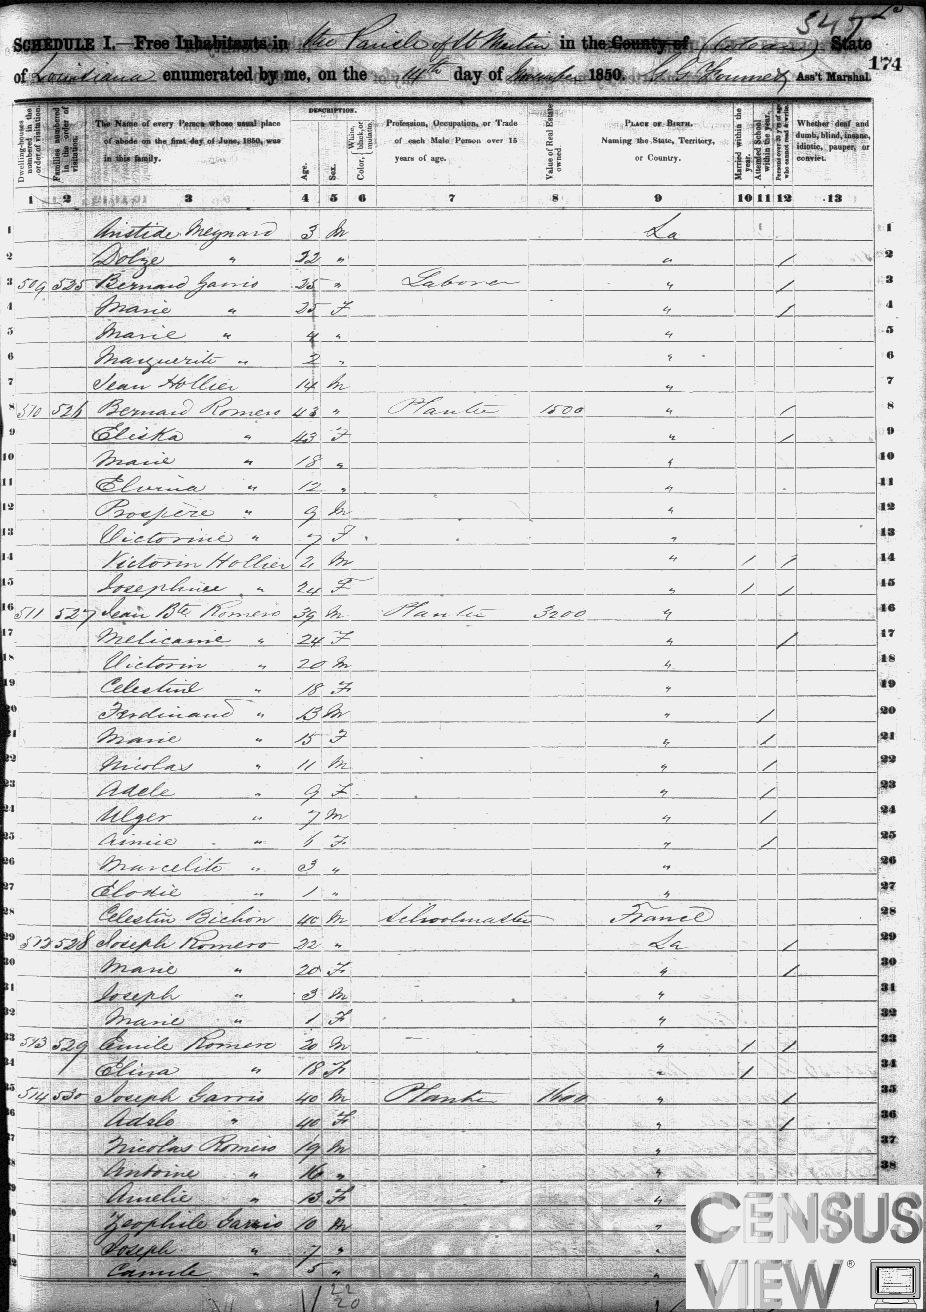 347
SCHEDULE I.—Free Inhabitants in the Parish of St Martin in the County of State
of Louisiana enumerated by me, on the 14th day of November 1850. Ass't Marshal. 174
Dwelling-houses numbered in the order of visitation. Families numbered in the order of visitation. The Name of every Person whose usual place of abode on the first day of June, 1850, was in this family. DESCRIPTION. Age. Sex. Color, White, black, or mulatto. Profession, Occupation, or Trade of each Male Person over 15 years of age. Value of Real Estate owned. PLACE OF BIRTH. Naming the State, Territory, or Country. Married within the year. Attended School within the year. Persons over 20 y'rs of age who cannot read & write. Whether deaf and dumb, blind, insane, idiotic, pauper, or convict.
1 2 3 4 5 6 7 8 9 10 11 12 13
1 Aristide Meynard 3 M La 1
2 Dolze " 22 " " / 2
3 509 525 Bernard Garris 25 " Laborer " / 3
4 Marie " 25 F " / 4
5 Marie " 4 " " 5
6 Marguerite " 2 " " 6
7 Jean Hollier 14 M " 7
8 510 526 Bernard Romero 43 " Planter 1500 " / 8
9 Eliska " 43 F " / 9
10 Marie " 18 " " 10
11 Elvina " 12 " " 11
12 Prospere " 9 M " 12
13 Victorine " 7 F " 13
14 Victorin Hollier 21 M " / / 14
15 Josephine " 24 F " / / 15
16 511 527 Jean Bte Romero 39 M Planter 3200 " 16
17 Melicame " 24 F " / 17
18 Victorin " 20 M " 18
19 Celestine " 18 F " 19
20 Ferdinand " 13 M " / 20
21 Marie " 15 F " / 21
22 Nicolas " 11 M " / 22
23 Adele " 9 F " / 23
24 Ulger " 7 M " / 24
25 Aimie " 6 F " / 25
26 Marcelite " 3 " " 26
27 Elodie " 1 " " 27
28 Celestin Bichon 40 M Schoolmaster France 28
29 512 528 Joseph Romero 22 " La / 29
30 Marie " 20 F " / 30
31 Joseph " 3 M " 31
32 Marie " 1 F " 32
33 513 529 Emile Romero 20 M " / / 33
34 Elina " 18 F " / 34
35 514 530 Joseph Garris 40 M Planter 1600 " / 35
36 Adele " 40 F " / 36
37 Nicolas Romero 19 M " 37
38 Antoine " 16 " " 38
Amelie " 13 F "
Zeophile Garris 10 M "
Joseph " 7 " "
Camile " 5 " "
22
20
CENSUS VIEW®